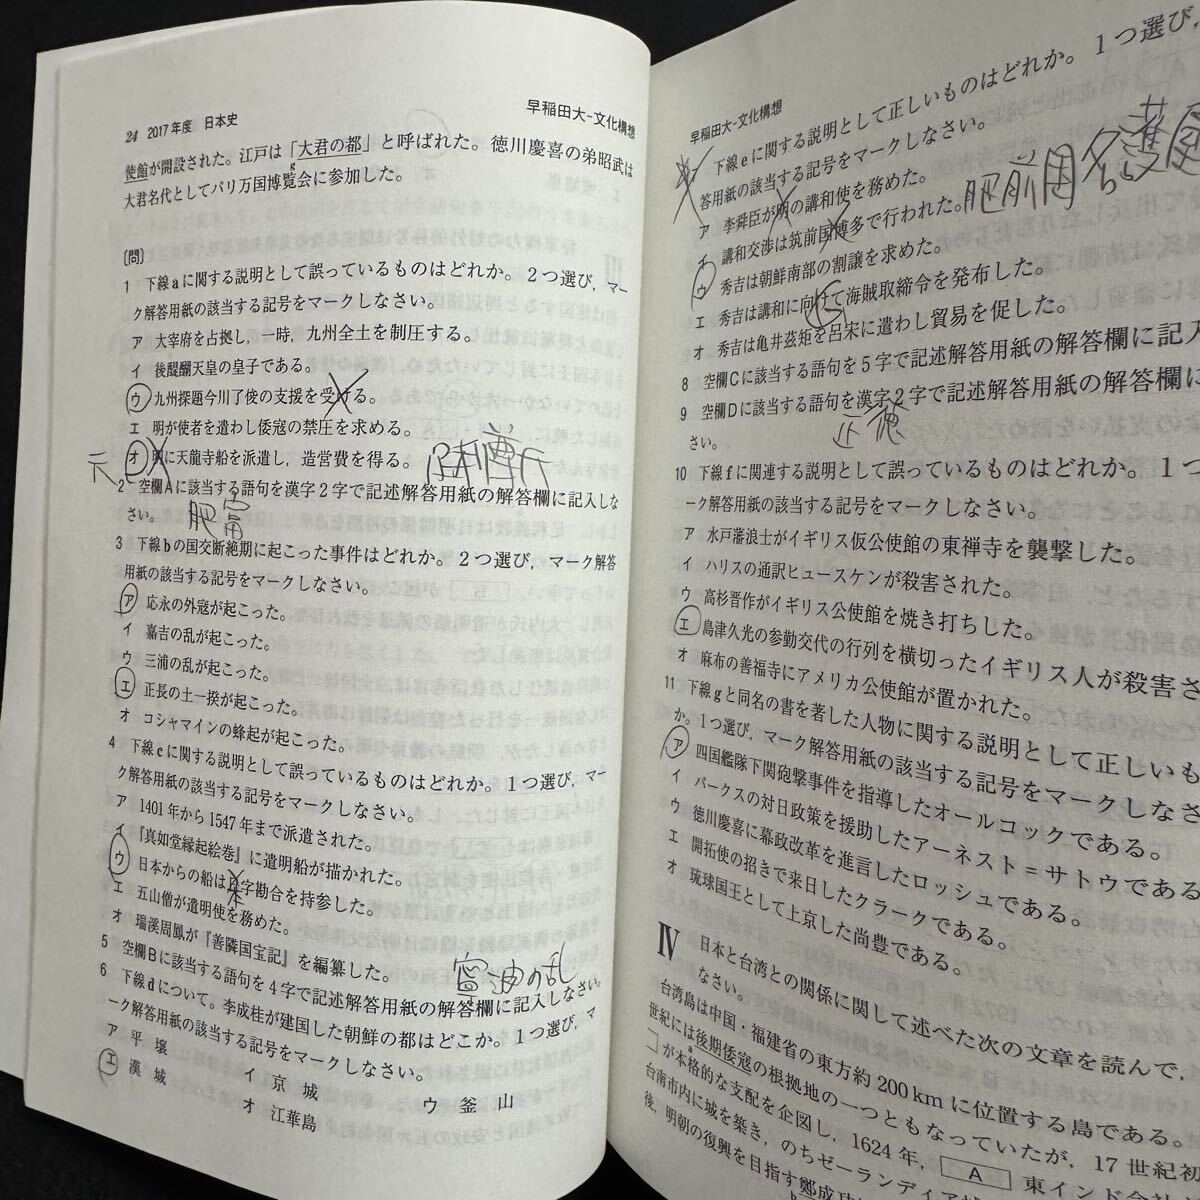 24 2017年度 日本史
早稲田大-文化構想
使館が開設された。江戸は「大君の都」と呼ばれた。徳川慶喜の弟昭武は
g
大君名代としてパリ万国博覧会に参加した。
〔問〕
1 下線aに関する説明として誤っているものはどれか。2つ選び，マー
ク解答用紙の該当する記号をマークしなさい。
ア 大宰府を占拠し，一時，九州全土を制圧する。
イ 後醍醐天皇の皇子である。
ウ 九州探題今川了俊の支援を受ける。
エ 明が使者を遣わし倭寇の禁圧を求める。
オ 明に天龍寺船を派遣し，造営費を得る。
元
2 空欄Aに該当する語句を漢字2字で記述解答用紙の解答欄に記入しな
さい。
肥富
3 下線bの国交断絶期に起こった事件はどれか。2つ選び，マーク解答
用紙の該当する記号をマークしなさい。
ア 応永の外寇が起こった。
イ 嘉吉の乱が起こった。
ウ 三浦の乱が起こった。
エ 正長の土一揆が起こった。
オ コシャマインの蜂起が起こった。
4 下線cに関する説明として誤っているものはどれか。1つ選び，マー
ク解答用紙の該当する記号をマークしなさい。
ア 1401年から1547年まで派遣された。
イ 『真如堂縁起絵巻』に遣明船が描かれた。
ウ 日本からの船は日字勘合を持参した。
本
エ 五山僧が遣明使を務めた。
オ 瑞溪周鳳が『善隣国宝記』を編纂した。
寧波の乱
5 空欄Bに該当する語句を4字で記述解答用紙の解答欄に記入しなさい。
6 下線dについて。李成桂が建国した朝鮮の都はどこか。1つ選び，マ
ーク解答用紙の該当する記号をマークしなさい。
ア 平壌
イ 京城
ウ 釜山
エ 漢城
オ 江華島
早稲田大-文化構想
下線eに関する説明として正しいものはどれか。1つ選び，
答用紙の該当する記号をマークしなさい。
ア 李舜臣が明の講和使を務めた。
イ 講和交渉は筑前国博多で行われた。
肥前国名護屋
ウ 秀吉は朝鮮南部の割譲を求めた。
エ 秀吉は講和に向けて海賊取締令を発布した。
オ 秀吉は亀井玆矩を呂宋に遣わし貿易を促した。
8 空欄Cに該当する語句を5字で記述解答用紙の解答欄に記入
9 空欄Dに該当する語句を漢字2字で記述解答用紙の解答欄に
さい。
正徳
10 下線fに関連する説明として誤っているものはどれか。1つ
ーク解答用紙の該当する記号をマークしなさい。
ア 水戸藩浪士がイギリス仮公使館の東禅寺を襲撃した。
イ ハリスの通訳ヒュースケンが殺害された。
ウ 高杉晋作がイギリス公使館を焼き打ちした。
エ 島津久光の参勤交代の行列を横切ったイギリス人が殺害さ
オ 麻布の善福寺にアメリカ公使館が置かれた。
11 下線gと同名の書を著した人物に関する説明として正しいも
か。1つ選び，マーク解答用紙の該当する記号をマークしなさ
ア 四国艦隊下関砲撃事件を指導したオールコックである。
イ パークスの対日政策を援助したアーネスト＝サトウである
ウ 徳川慶喜に幕政改革を進言したロッシュである。
エ 開拓使の招きで来日したクラークである。
オ 琉球国王として上京した尚豊である。
Ⅳ 日本と台湾との関係に関して述べた次の文章を読んで，
なさい。
台湾島は中国・福建省の東方約200kmに位置する島である。
世紀には後期倭寇の根拠地の一つともなっていたが，17世紀初
a
が本格的な支配を企図し，1624年，A東インド会社
台南市内に城を築き，のちゼーランディア城
後，明朝の復興を目指す鄭成功
b